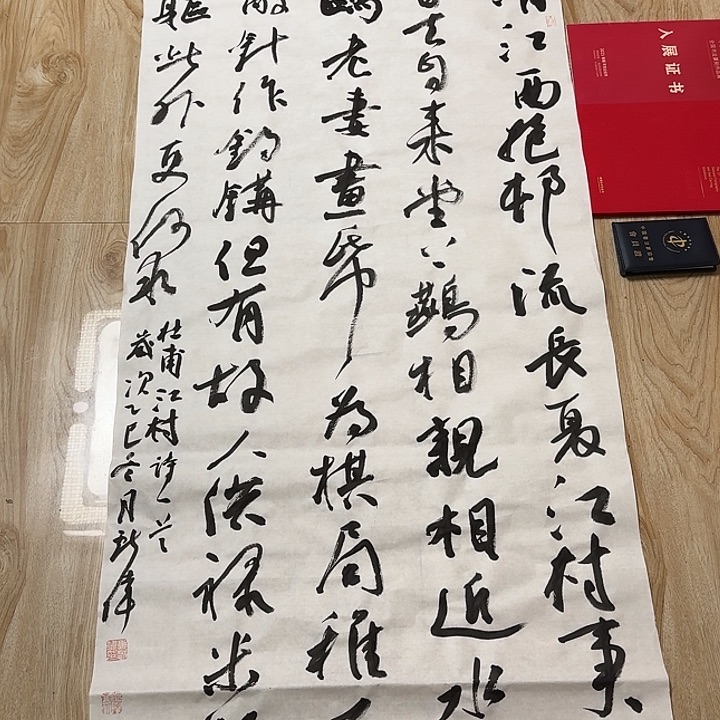 江一曲抱邨流長夏江村事
去自来堂上鷰相親相近水
鷗老妻畫帋為棋局稚
敲針作釣鈎但有故人供祿米
軀此外更何求
杜甫江村詩一首
歲次乙巳冬月
入展证书
會員證